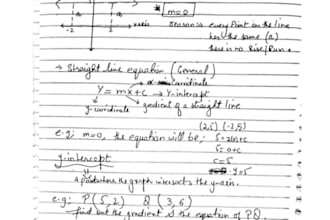 m=0
-2 2 x-axis
reason:→ every Point on the line
has the same (a)
there is no Rise/Run
→ Straight line equation (General)
x-coordinate
Y = mx+c → Y-intercept
y-coordinate gradient of a straight line
(2,5) (-2,5)
e.g; m=0, the equation will be;
5=2(0)+c
5=0+c
c=5
y=5
y-intercept
A point where the graph intersects the y-axis.
e.g: P(5,2) Q(3,6)
find out the gradient & the equation of PQ